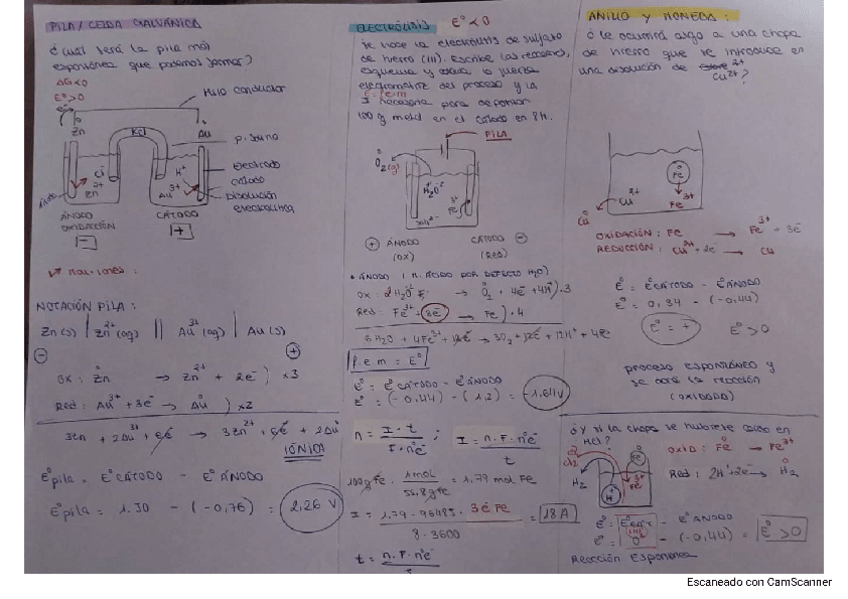 PILA / CELDA GALVÁNICA
¿Cuál será la pila más
espontánea que podemos formar?
ΔG<0
E°>0
e⁻
Hilo conductor
Zn
KCl
Au
p. salino
Electrodo
Cátodo
Disolución
electrolítica
Cl⁻
Zn²⁺
H⁺
Au³⁺
Ánodo
ÁNODO
OXIDACIÓN
CÁTODO
NOTACIÓN PILA:
Zn(s) | Zn²⁺(aq) || Au³⁺(aq) | Au(s)
Ox: Zn → Zn²⁺ + 2e⁻) x3
Red: Au³⁺ + 3e⁻ → Au) x2
3Zn + 2Au³⁺ + 6e⁻ → 3Zn²⁺ + 6e⁻ + 2Au
IÓNICA
E°pila = E°CÁTODO - E°ÁNODO
E°pila = 1.50 - (-0,76) = 2,26 V
ELECTRÓLISIS E°<0
Se hace la electrólisis de sulfato
de hierro (III). Escribe las reacciones,
esquema y la fuerza
electromotriz del proceso y la
I necesaria para depositar
100 g en el cátodo en 8H.
PILA
O₂(g)
H₂O
Fe³⁺
Fe
+ ÁNODO
(OX)
CÁTODO -
(RED)
• ÁNODO (M. ÁCIDO POR DEFECTO H₂O)
OX: 2H₂O → O₂ + 4e⁻ + 4H⁺).3
Red: Fe³⁺ + 3e⁻ → Fe).4
6H₂O + 4Fe³⁺ + 12e⁻ → 3O₂ + 12e⁻ + 12H⁺ + 4Fe
f.e.m = E°
E° = E°CÁTODO - E°ÁNODO
E° = (-0,44) - (1,2) = -1,64V
n = I · t / F · n°e⁻ ; I = n · F · n°e⁻ / t
100g Fe · 1mol / 55,8g Fe = 1,79 mol Fe
I = 1,79 · 96485 · 3e⁻ Fe / 8 · 3600 = 18 A
t = n · F · n°e⁻
ANILLO Y MONEDA:
¿Le ocurrirá algo a una chapa
de hierro que se introduce en
una disolución de Cu²⁺?
Cu
Cu²⁺
Fe
Fe³⁺
OXIDACIÓN: Fe → Fe³⁺ + 3e⁻
REDUCCIÓN: Cu²⁺ + 2e⁻ → Cu
E° = E°CÁTODO - E°ÁNODO
E° = 0,34 - (-0,44)
E° = + E°>0
proceso espontáneo y
se dará la reacción
(OXIDADA)
¿Y si la chapa se hubiese caído en
HCl?
H₂
H⁺
Fe
Fe³⁺
OXID: Fe → Fe³⁺
Red: 2H⁺ + 2e⁻ → H₂
E° = E°CÁT - E°ÁNODO
E° = 0 - (-0,44) = E°>0
Reacción Espontánea
Escaneado con CamScanner